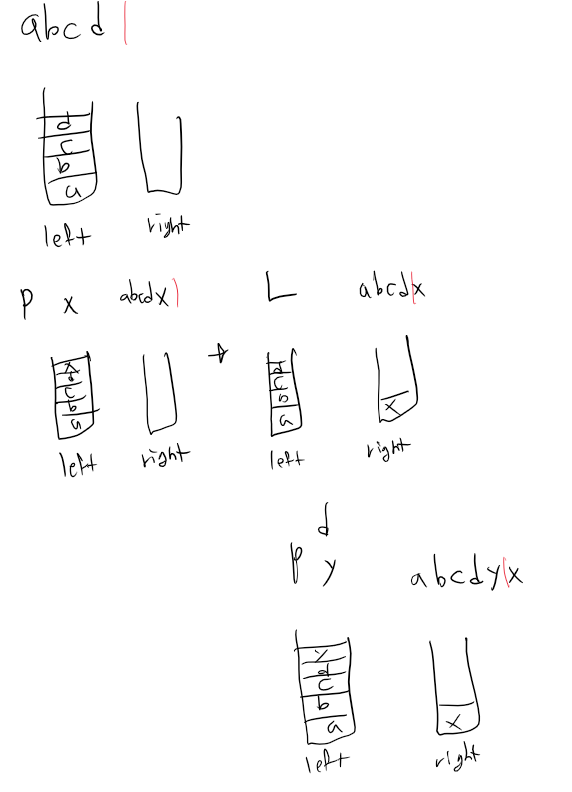 abcd|
d
c
b
a
left right
P x abcdx| → L abcd|x
x
d
c
b
a
left right
d
c
b
a
x
left right
d
P y abcdy|x
y
d
c
b
a
x
left right